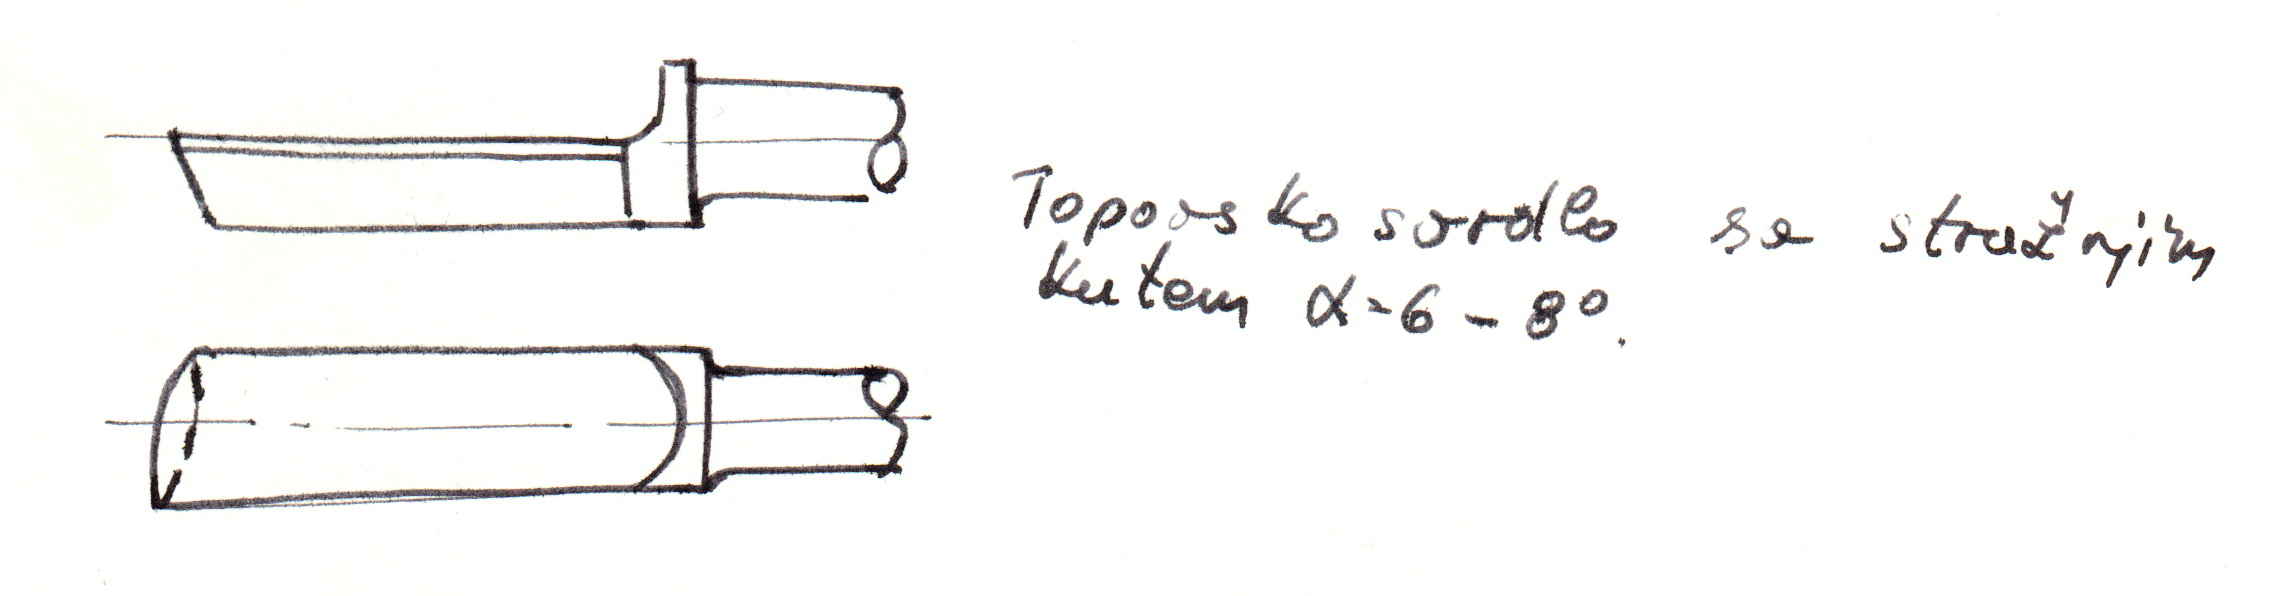 Topovsko svrdlo sa stražnjim
kutem α=6 – 8°.